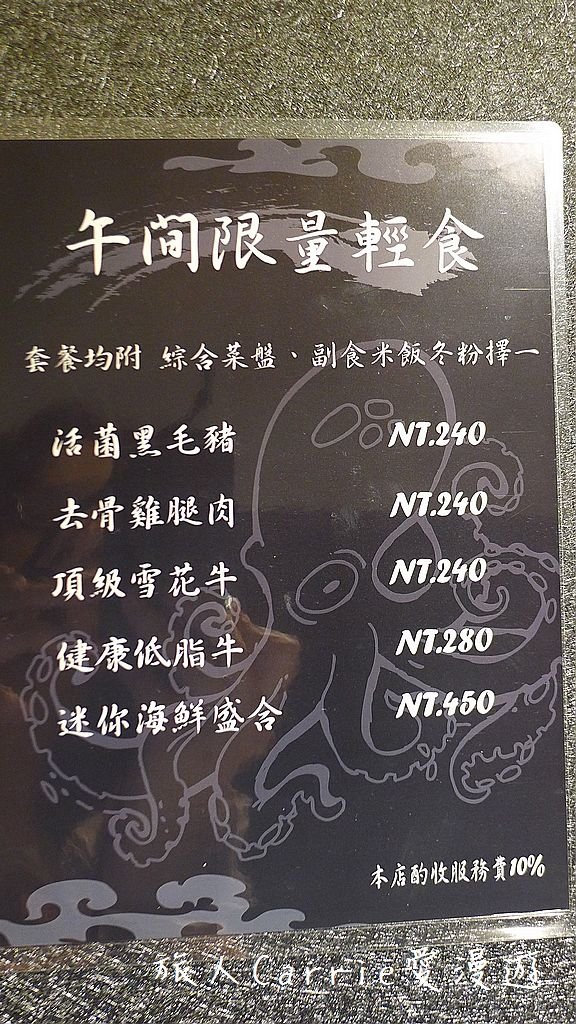 午間限量輕食
套餐均附 綜合菜盤、副食米飯冬粉擇一
活菌黑毛豬 NT.240
去骨雞腿肉 NT.240
頂級雪花牛 NT.240
健康低脂牛 NT.280
迷你海鮮盛合 NT.450
本店酌收服務費10%
旅人Carrie愛漫遊